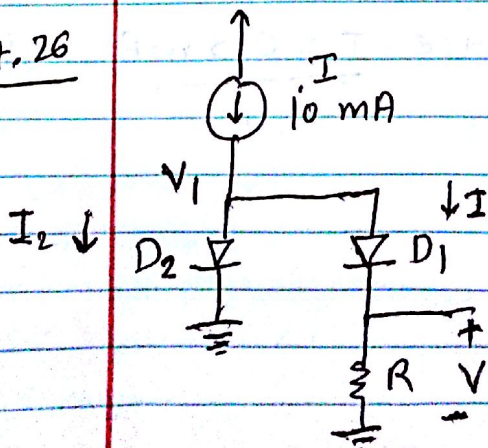 .26
I
10 mA
V1
I2 ↓ D2
↓I
D1
+
R V
-